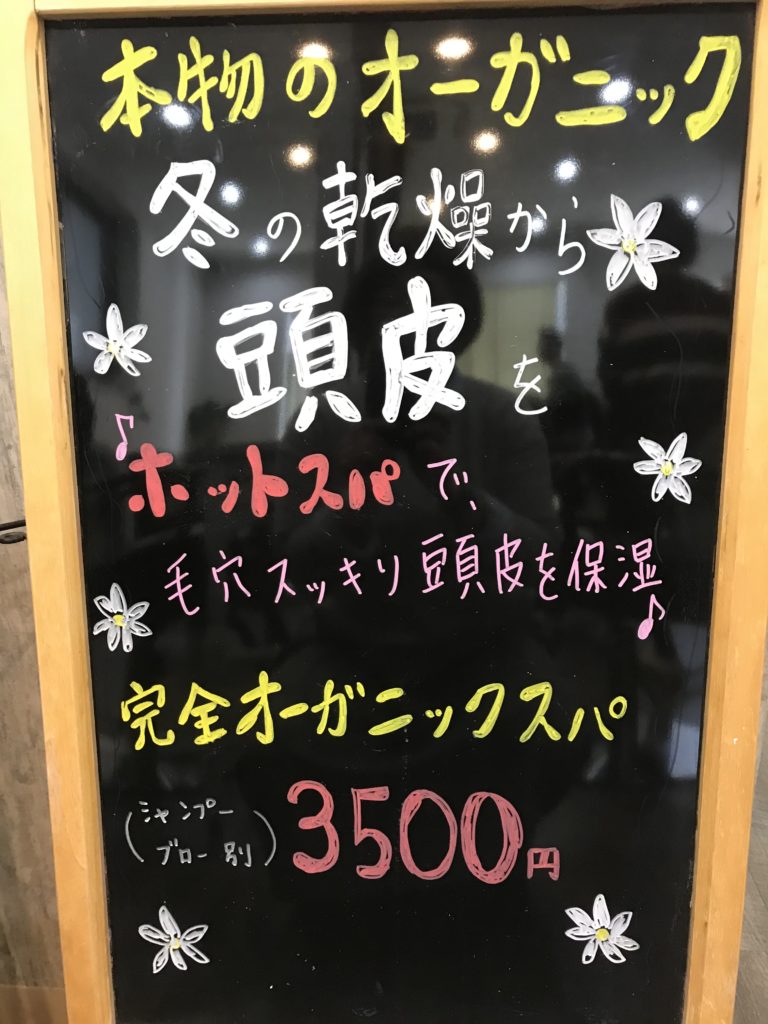 本物のオーガニック
冬の乾燥から
頭皮を
♪ホットスパで、
毛穴スッキリ頭皮を保湿♪
完全オーガニックスパ
(シャンプー
ブロー別) 3500円